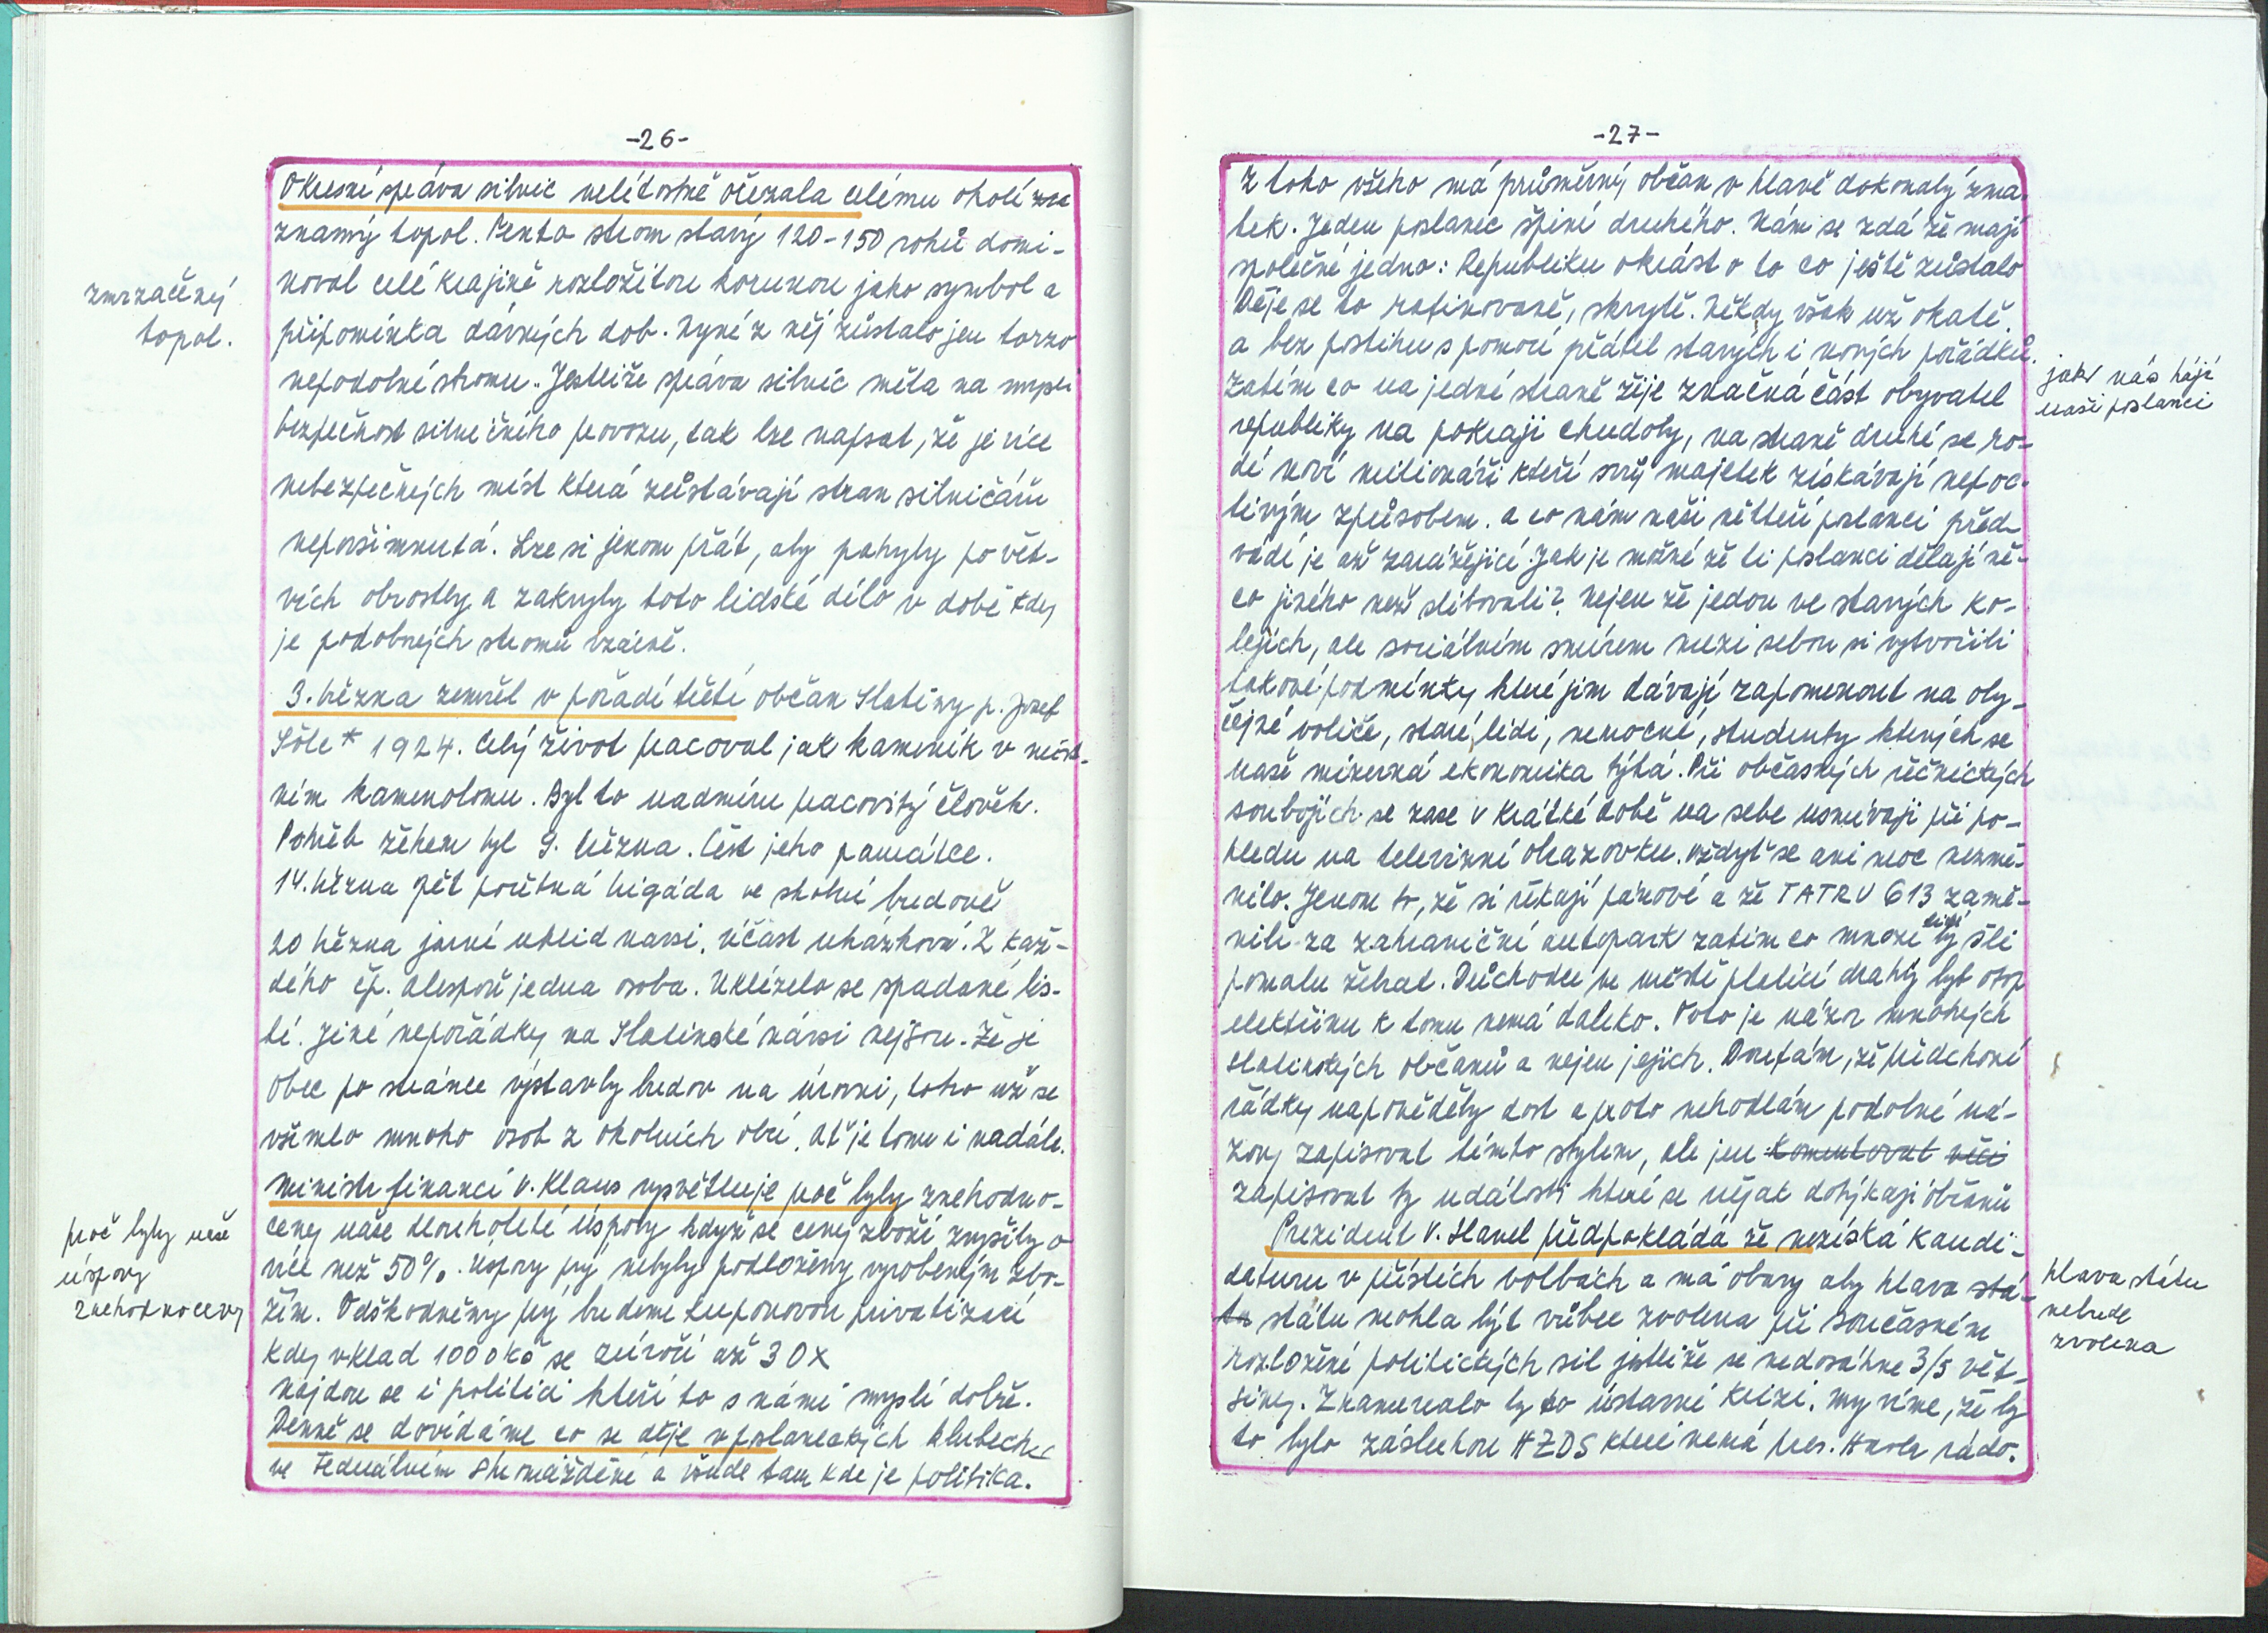 -26-
Okresní správa silnic nelítostně ořezala celému okolí
známý topol. Tento strom starý 120-150 roků domi-
noval celé krajině rozložitou korunou jako symbol a
připomínka dávných dob. Nyní z něj zůstalo jen torzo
nepodobné stromu. Jestliže správa silnic měla na mysli
bezpečnost silničního provozu, tak lze napsat, že je více
nebezpečných míst která zůstávají stran silničářů
nepovšimnutá. Lze si jenom přát, aby pahyly po vět-
vích obrostly a zakryly toto lidské dílo v době kdy
je podobných stromů vzácně.
zmrzačený
topol.
3. března zemřel v pořadí třetí občan Slatiny p. Josef
Šole * 1924. Celý život pracoval jak kameník v míst-
ním kamenolomu. Byl to nadmíru pracovitý člověk.
Pohřeb žehem byl 9. března. Čest jeho památce.
14. března pět požární brigáda ve školní budově
20 března jarní úklid návsi. Účast ukázková. Z kaž-
dého čp. alespoň jedna osoba. Uklízelo se spadané lis-
tí. Jiné nepořádky na Slatinské návsi nejsou. Že je
obec po stránce výstavby budov na úrovni, toho už se
všimlo mnoho osob z okolních obcí. Ať je tomu i nadále.
Ministr financí V. Klaus vysvětluje proč byly znehodno-
ceny naše dlouholeté úspory když se ceny zboží zvýšily o
více než 50%. Úspory prý nebyly podloženy vyrobeným zbo-
žím. Odškodněny prý budeme kuponovou privatizací
kdy vklad 1000 Kč se zúročí až 30 x
najdou se i politici kteří to s námi myslí dobře.
proč byly naše
úspory
znehodnoceny
Denně se dovídáme co se děje v poslaneckých klubech
ve Federálním shromáždění a všude tam kde je politika.
-27-
Z toho všeho má průměrný občan v hlavě dokonalý zma-
tek. Jeden poslanec špiní druhého. Nám se zdá že mají
společné jedno: Republiku okrást o to co ještě zůstalo
Děje se to rafinovaně, skrytě. Někdy však už okatě.
a bez postihu s pomocí přátel starých i nových pořádků.
Zatím co na jedné straně žije značná část obyvatel
republiky na pokraji chudoby, na straně druhé se ro-
dí noví milionáři kteří svůj majetek získávají nepoc-
tivým způsobem. a co nám naši někteří poslanci před-
vádí je až zarážející. Jak je možné že ti poslanci dělají ně-
co jiného než slibovali? Nejen že jedou ve starých ko-
lejích, ale sociálním smírem mezi sebou si vytvořili
takové podmínky které jim dávají zapomenout na oby-
čejné voliče, staré lidi, nemocné, studenty kterých se
naše mizerná ekonomika týká. Při občasných řečnických
soubojích se zase v krátké době na sebe usmívají při po-
hledu na televizní obrazovku. vždyť se ani moc nezmě-
nilo. Jenom to, že si říkají pánové a že TATRU 613 zamě-
nili za zahraniční autopark zatím co mnozí lidi by šli
pomalu žebrat. Důchodce ve městě platící drahý byt otop
elektřinu k tomu nemá daleko. Toto je názor mnohých
slatinských občanů a nejen jejich. Doufám, že předchozí
řádky napověděly dost a proto nehodlám podobné ná-
zory zapisovat tímto stylem, ale jen komentovat věci
zapisovat ty události které se nějak dotýkají občanů
jak nás hájí
naši poslanci
Prezident V. Havel předpokládá že nezíská kandi-
daturu v příštích volbách a má obavy aby hlava stá-
tu státu mohla být vůbec zvolena při současném
rozložení politických sil jestliže se nedosáhne 3/5 vět-
šiny. Znamenalo by to ústavní krizi. My víme, že by
to bylo zásluhou HZDS které nemá pres. Havla rádo.
hlava státu
nebude
zvolena